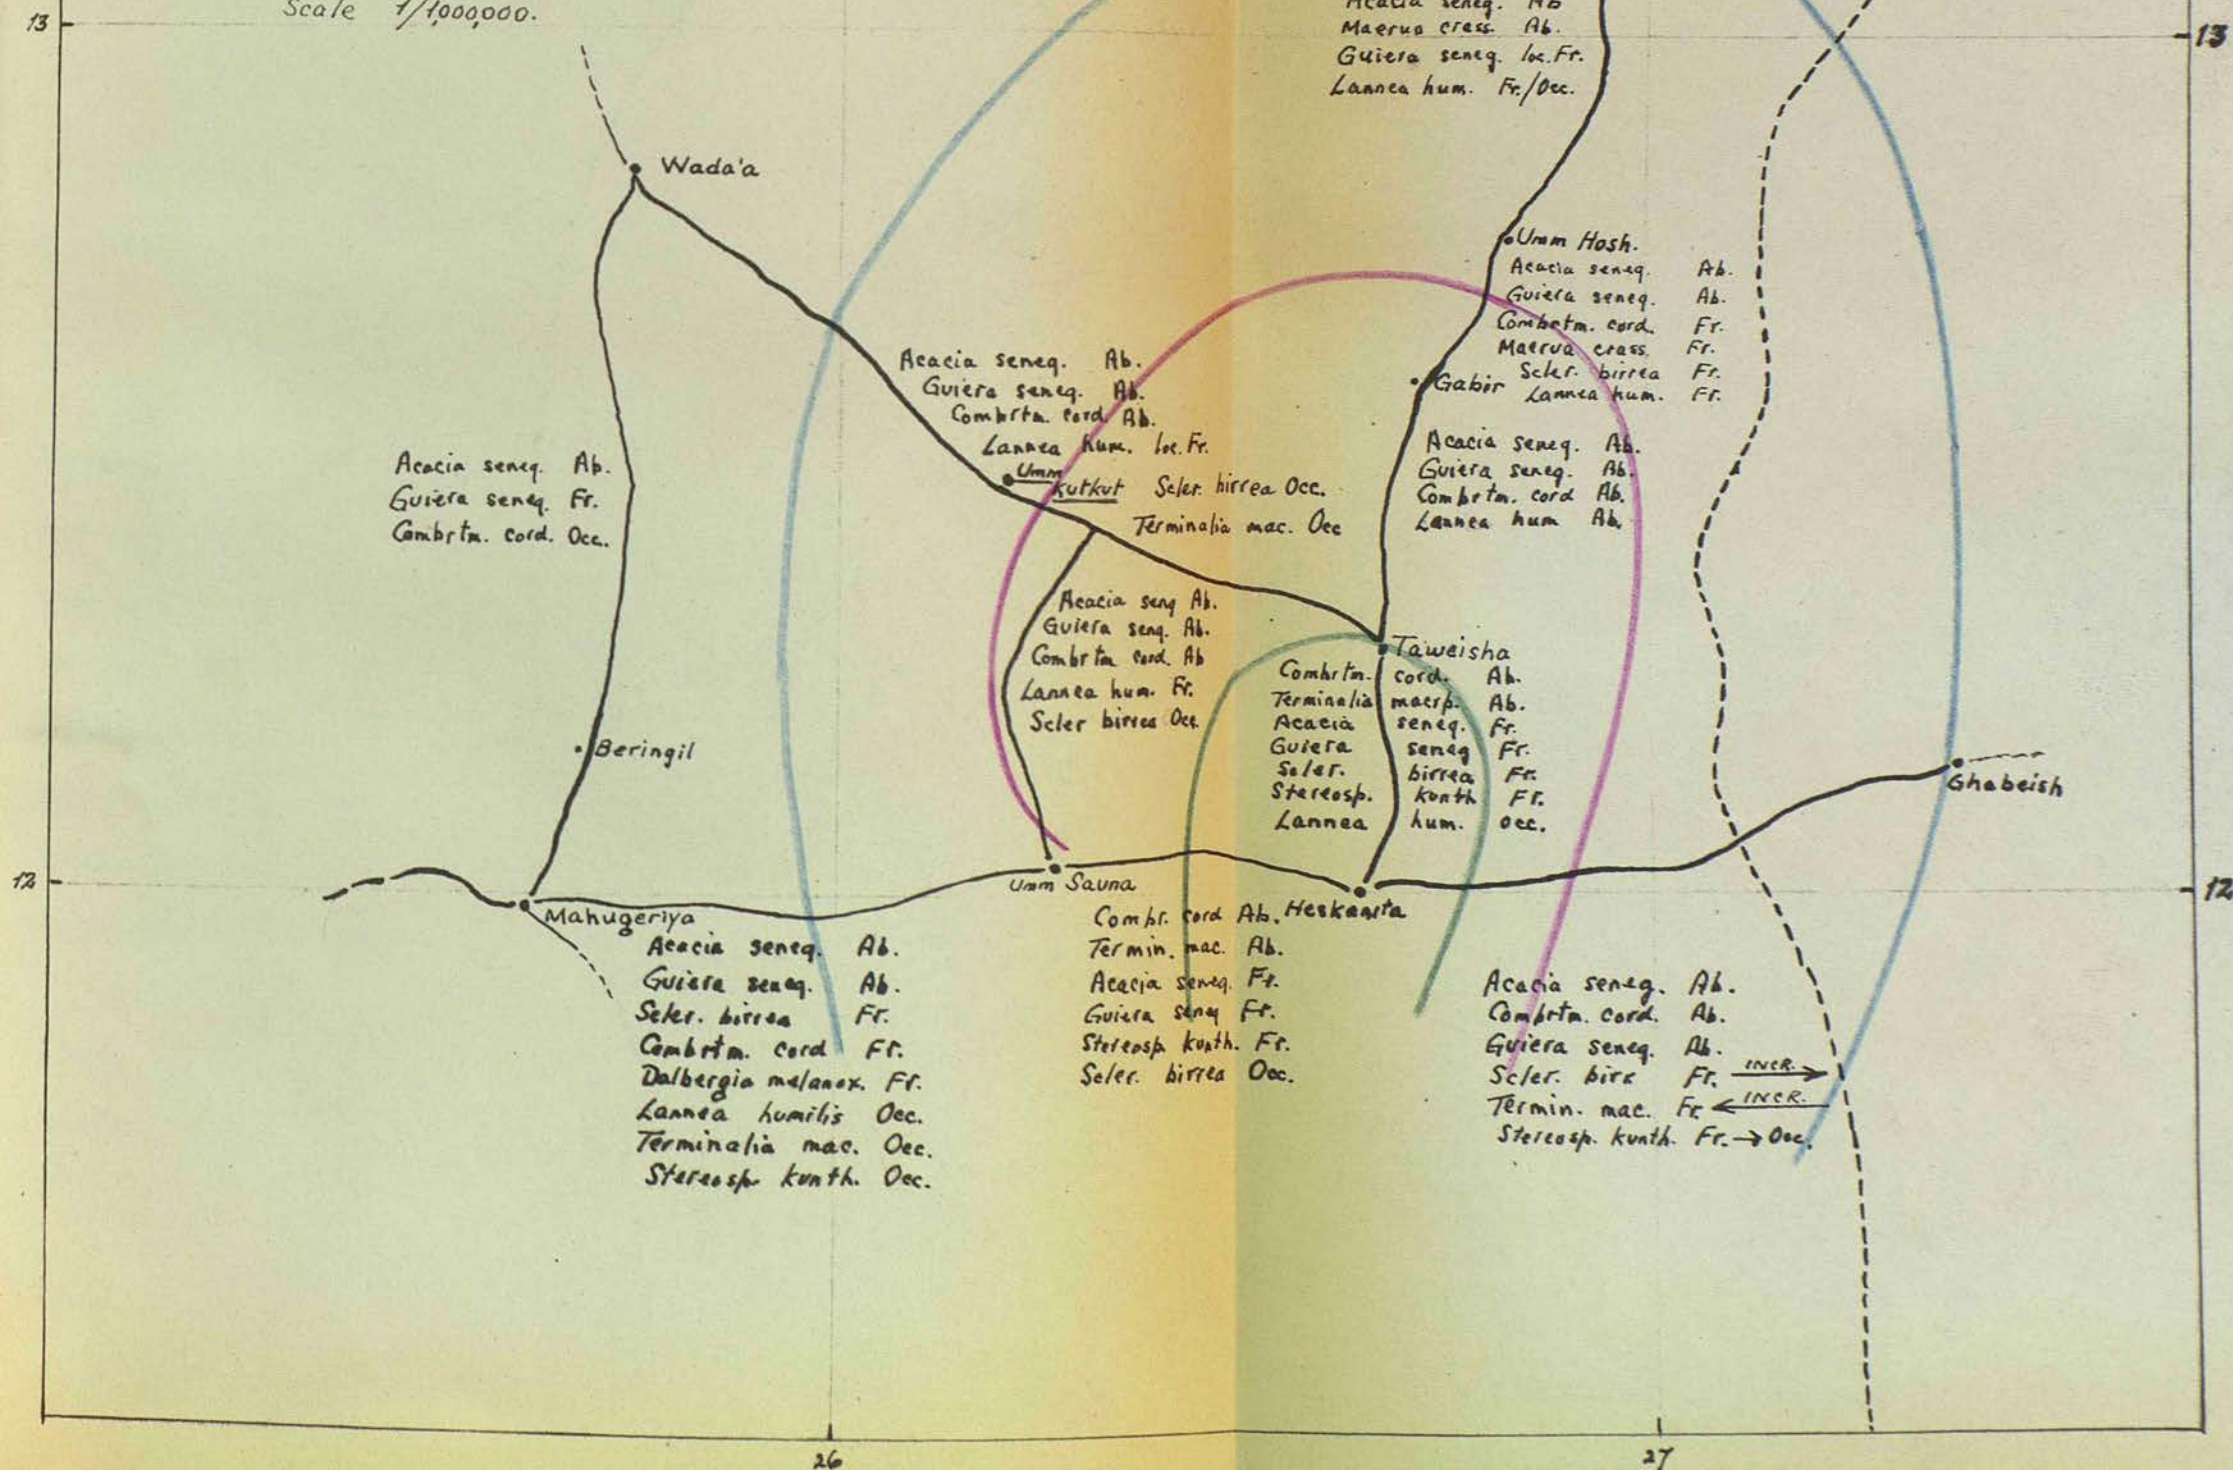 Scale 1/1,000,000.
13
13
Acacia seneg. Ab
Maerua crass. Ab.
Guiera seneg. loc. Fr.
Lannea hum. Fr./Occ.
Wada'a
Umm Hosh.
Acacia seneg. Ab.
Guiera seneg. Ab.
Combrtm. cord. Fr.
Maerua crass. Fr.
Scler. birrea Fr.
Lannea hum. Fr.
Gabir
Acacia seneg. Ab.
Guiera seneg. Ab.
Combrtm. cord. Ab.
Lannea hum. loc. Fr.
Umm
Kutkut
Scler. birrea Occ.
Terminalia mac. Occ
Acacia seneg. Ab.
Guiera seneg. Ab.
Combrtm. cord Ab.
Lannea hum Ab.
Acacia seneg. Ab.
Guiera seneg. Fr.
Combrtm. cord. Occ.
Acacia seng Ab.
Guiera seng. Ab.
Combrtm cord. Ab
Lannea hum. Fr.
Scler birrea Occ.
Taweisha
Combrtm. cord. Ab.
Terminalia macrp. Ab.
Acacia seneg. Fr.
Guiera seneg Fr.
Scler. birrea Fr.
Stereosp. kunth Fr.
Lannea hum. occ.
Beringil
Ghabeish
12
12
Mahugeriya
Umm Sauna
Heskanita
Acacia seneg. Ab.
Guiera seneg. Ab.
Scler. birrea Fr.
Combrtm. cord Fr.
Dalbergia melanox. Fr.
Lannea humilis Occ.
Terminalia mac. Occ.
Stereosp. kunth. Occ.
Combr. cord Ab.
Termin. mac. Ab.
Acacia seneg. Fr.
Guiera seneg Fr.
Stereosp. kunth. Fr.
Scler. birrea Occ.
Acacia seneg. Ab.
Combrtm. cord. Ab.
Guiera seneg. Ab.
Scler. birr Fr. INCR. →
Termin. mac. Fr. ← INCR.
Stereosp. kunth. Fr. → Occ.
26
27